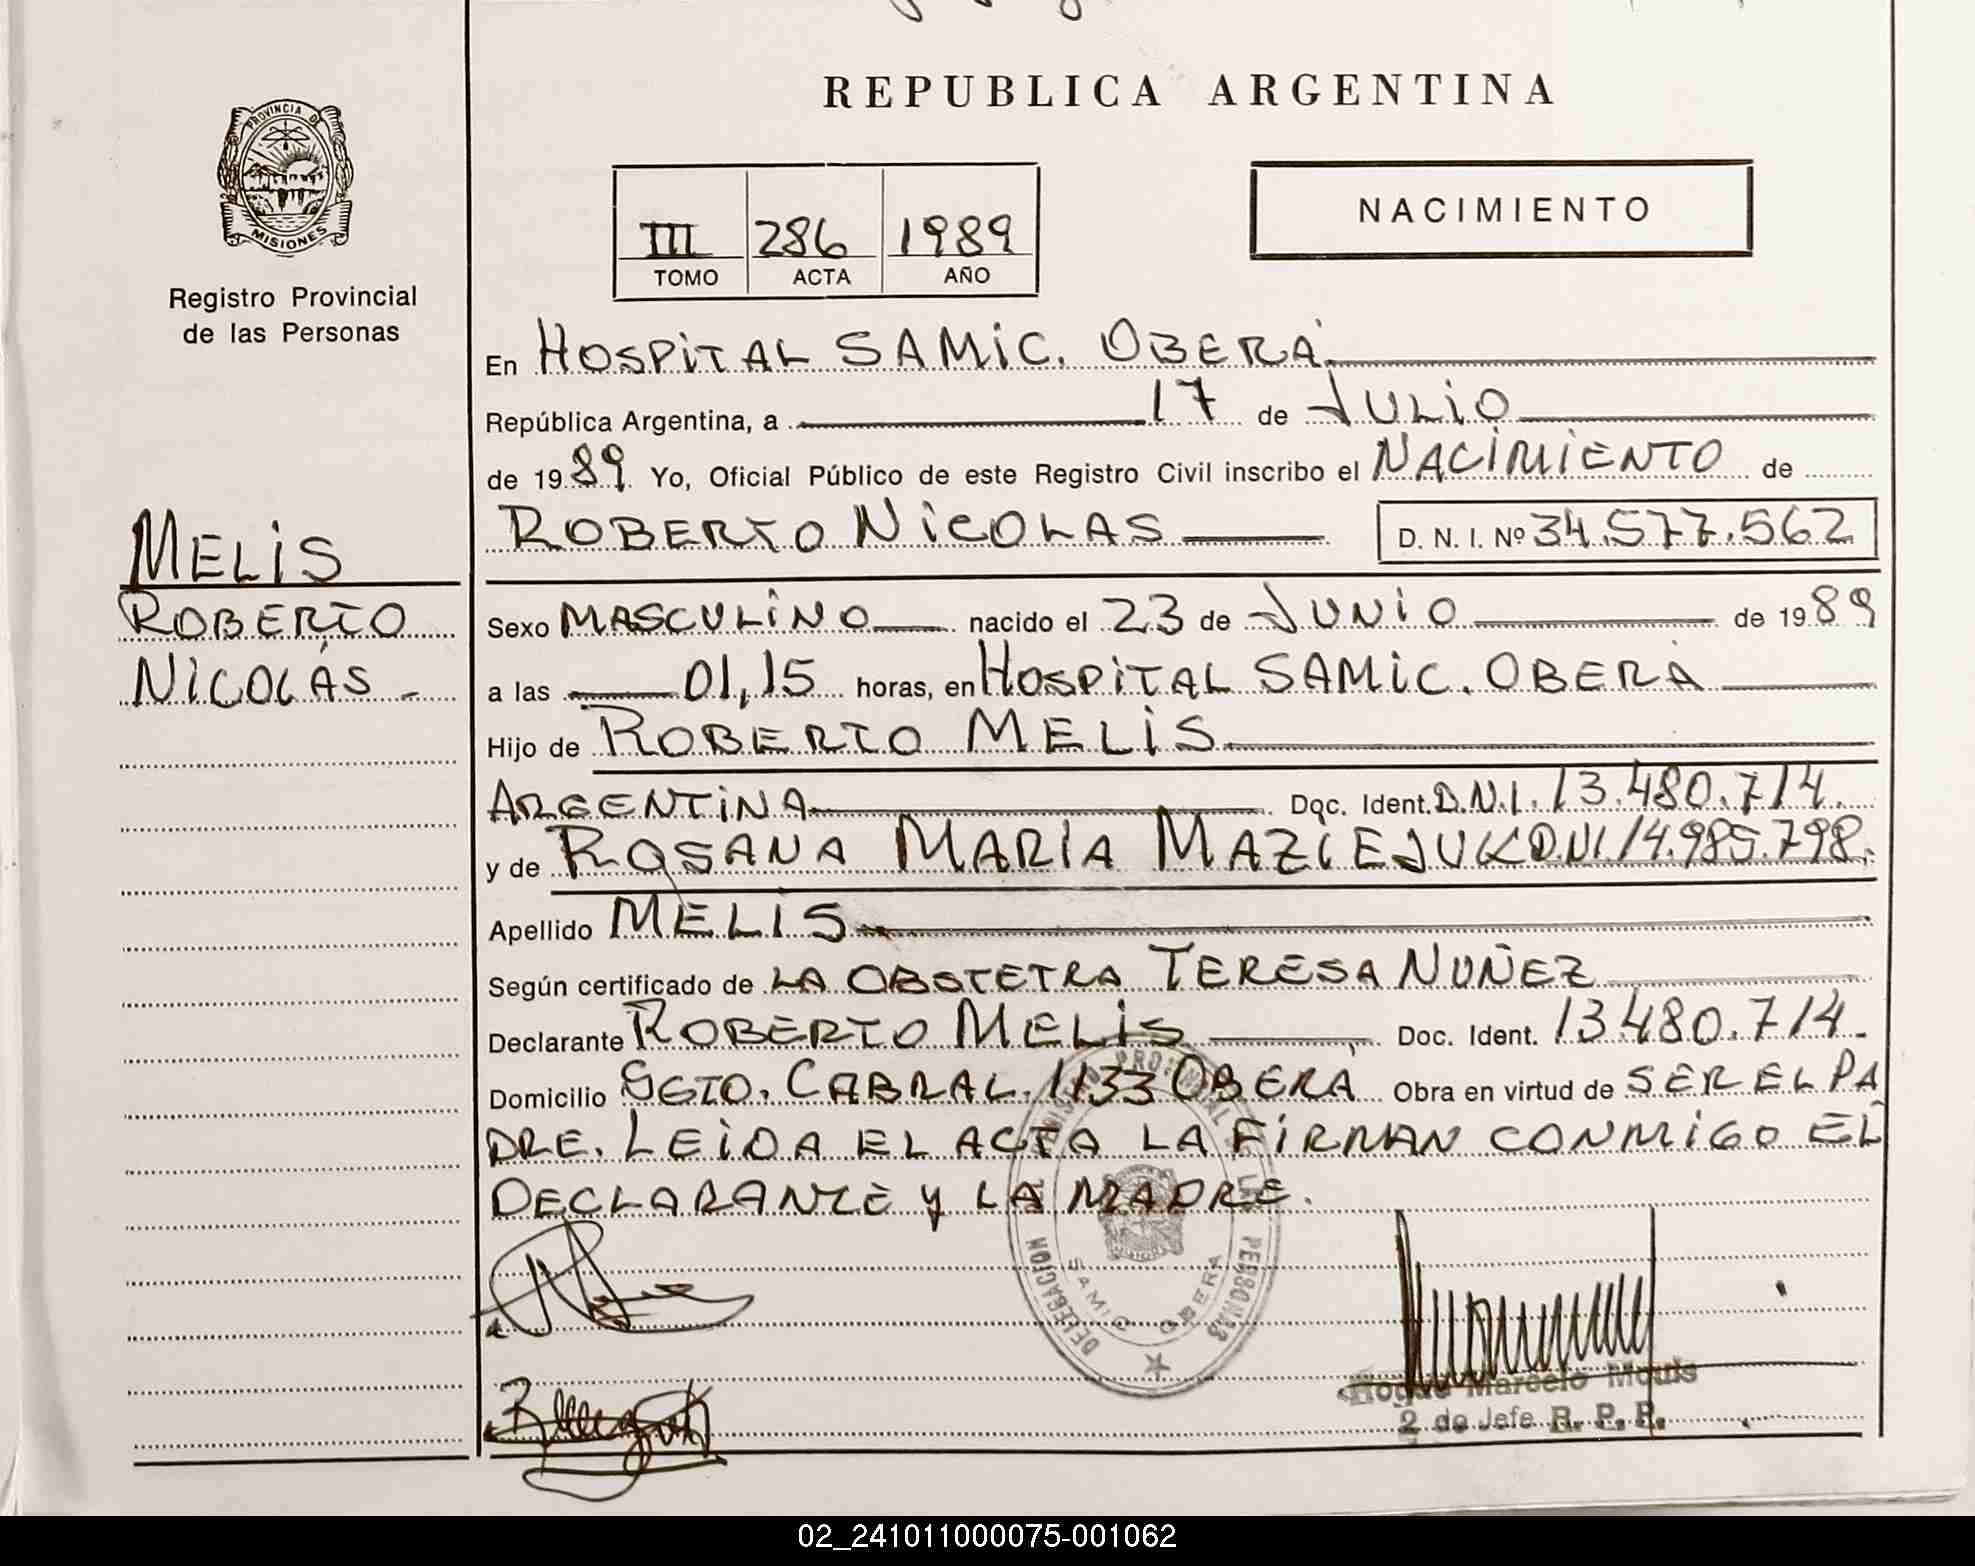 REPUBLICA ARGENTINA
PROVINCIA DE
MISIONES
Registro Provincial
de las Personas
III 286 1989
TOMO ACTA AÑO
NACIMIENTO
En HOSPITAL SAMIC. OBERÁ
República Argentina, a 17 de JULIO
de 1989 Yo, Oficial Público de este Registro Civil inscribo el NACIMIENTO de
ROBERTO NICOLAS D. N. I. Nº 34.577.562
MELIS
ROBERTO
NICOLÁS -
Sexo MASCULINO nacido el 23 de JUNIO de 1989
a las 01,15 horas, en HOSPITAL SAMIC. OBERÁ
Hijo de ROBERTO MELIS
ARGENTINA Doc. Ident. D.N.I. 13.480.714.
y de ROSANA MARIA MAZIEJUK D.NI. 14.985.798.
Apellido MELIS
Según certificado de LA OBSTETRA TERESA NUÑEZ
Declarante ROBERTO MELIS Doc. Ident. 13.480.714.
Domicilio SGTO. CABRAL. 1133 OBERÁ Obra en virtud de SER EL PA
DRE. LEIDA EL ACTA LA FIRMAN CONMIGO EL
DECLARANTE y LA MADRE.
DELEGACION
SAMIC OBERA
PERSONAS
Roque Marcelo Mouis
2 do Jefe R. P. P.
02_241011000075-001062